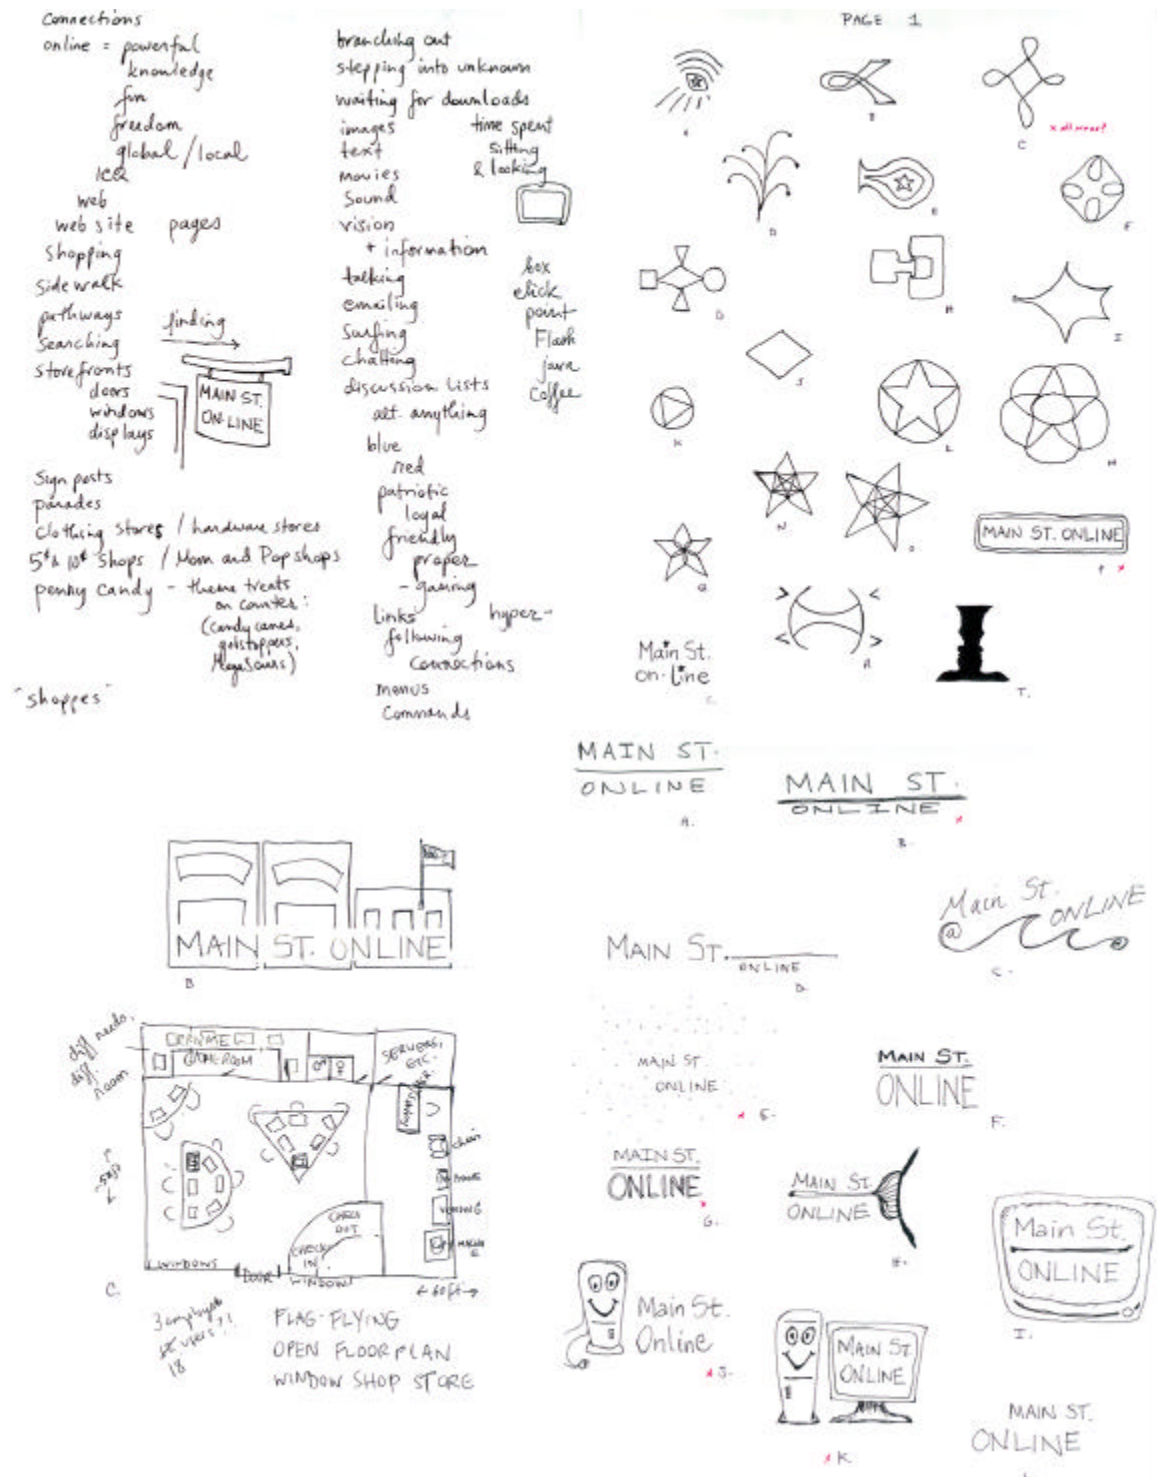 Connections
online = powerful
knowledge
fun
freedom
global / local
ICQ
web
web site pages
Shopping
Sidewalk
pathways
Searching
finding
storefronts
doors
windows
displays
MAIN ST.
ON-LINE
Sign posts
parades
Clothing stores / hardware stores
5¢ & 10¢ shops / Mom and Pop shops
penny candy - theme treats
on counter:
(candy canes,
gobstoppers,
MegaSours)
"Shoppes"
branching out
stepping into unknown
waiting for downloads
images
text
movies
Sound
vision
+ information
talking
emailing
Surfing
chatting
discussion lists
alt. anything
blue
red
patriotic
loyal
friendly
proper
- gaming
links hyper-
following
connections
menus
Commands
time spent
sitting
& looking
box
click
point
Flash
java
Coffee
PAGE 1
A
B
C
D
E
F
D
H
I
J
K
L
M
N
O
MAIN ST. ONLINE
P x
Q
R
Main St.
on-line
T.
MAIN ST.
ONLINE
A.
MAIN ST.
ONLINE
B. x
Main St.
ONLINE
@ @
C.
MAIN ST.
ONLINE
D.
MAIN ST.
ONLINE
x E.
MAIN ST.
ONLINE
F.
MAIN ST.
ONLINE
x
G.
MAIN ST.
ONLINE
H.
Main St.
ONLINE
I.
Main St.
Online
x J.
MAIN ST.
ONLINE
x K
MAIN ST.
ONLINE
MAIN ST. ONLINE
B
diff needs,
diff.
room
GAMEROOM
SERVERS,
ETC.
chair
VENDING
CHECK
OUT
CHECK
IN
WINDOWS
DOOR
WINDOW
← 60ft →
C.
18
FLAG-FLYING
OPEN FLOORPLAN
WINDOW SHOP STORE